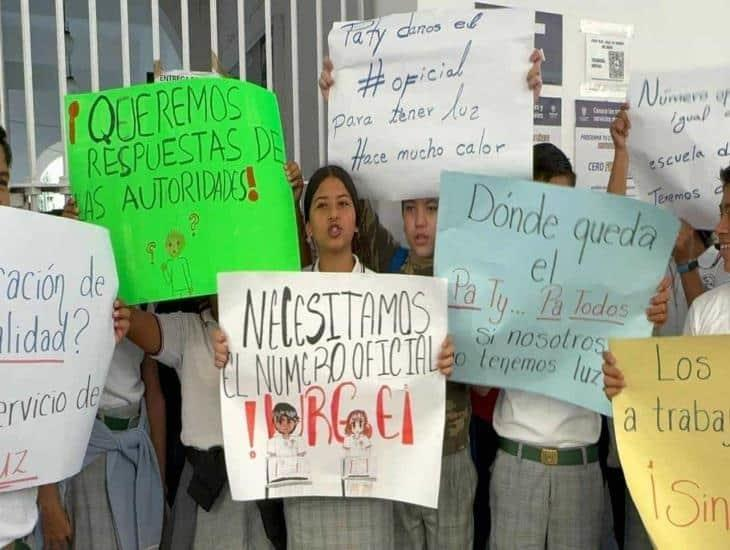 ¡QUEREMOS
RESPUESTAS DE
LAS AUTORIDADES!
Paty danos el
#oficial
para tener luz
Hace mucho calor
Número
igual
escuela
Tenemos
ración de
alidad?
servicio de
uz
NECESITAMOS
EL NUMERO OFICIAL
!URGE¡
Dónde queda
el
PaTy... PaTodos
si nosotros
no tenemos luz
Los
a traba
¡Sin